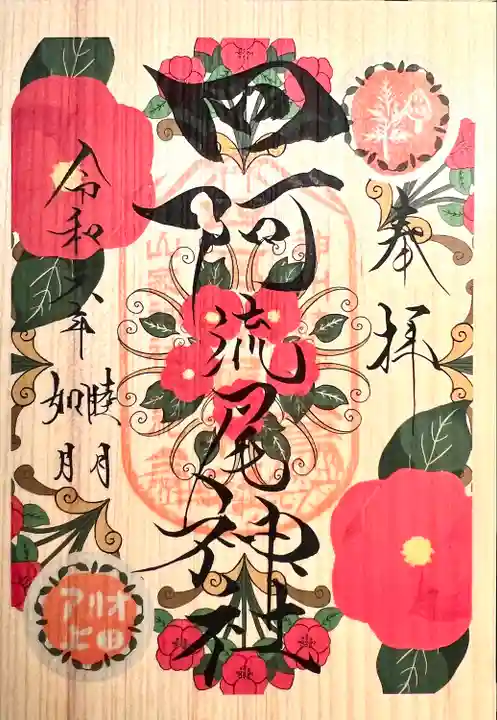 奉拝
四阿流尾神社
令和六年
睦月
如月
アリオ
ヒロ